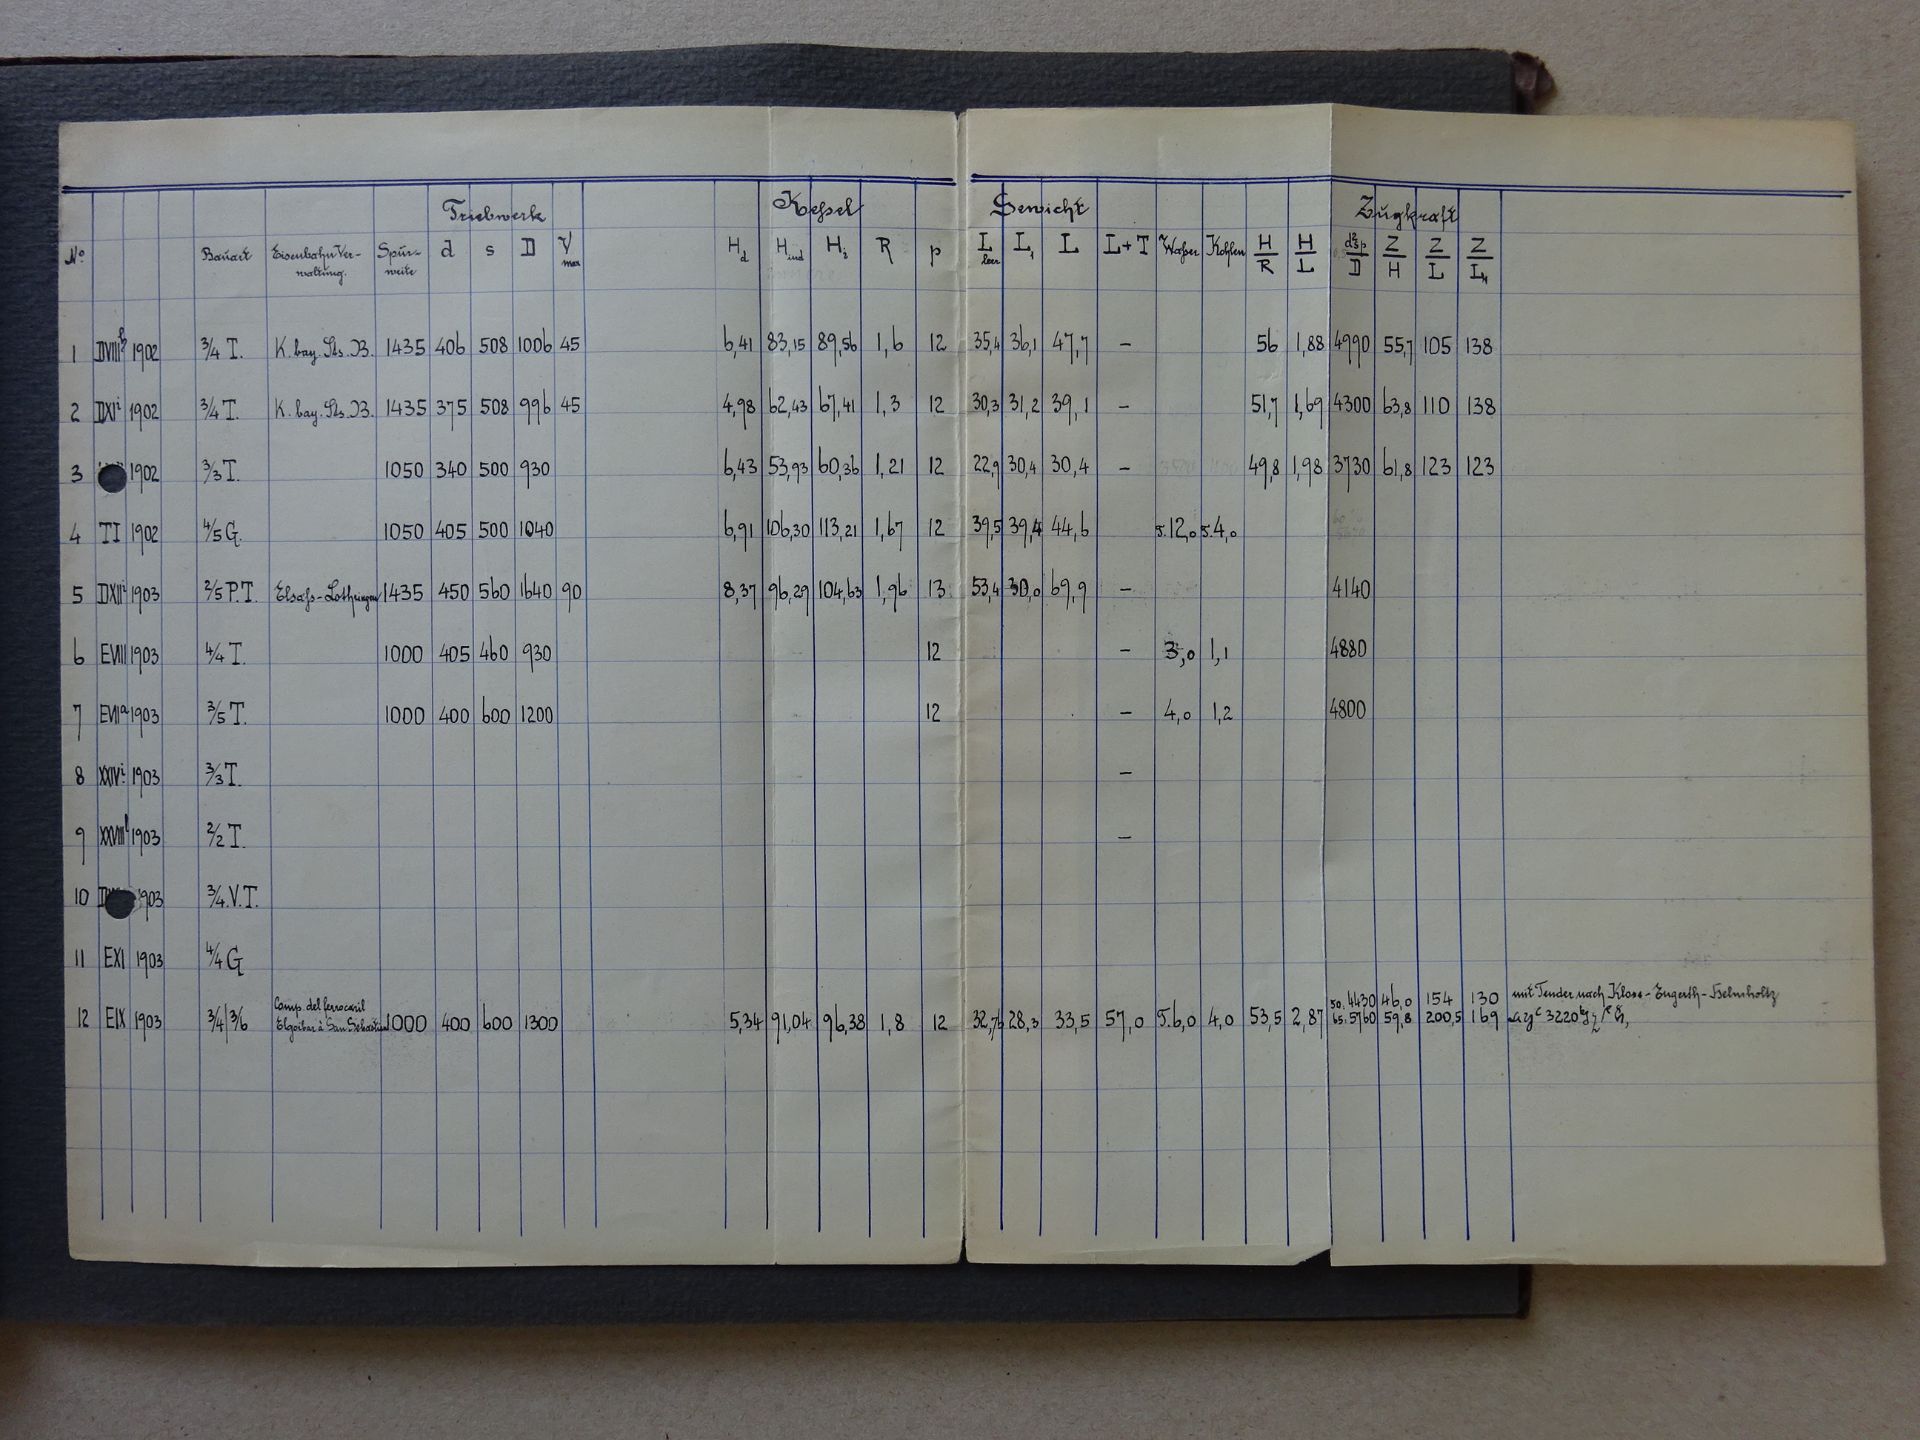 Triebwerk Kessel Gewicht Zugkraft
No. Bauart Eisenbahn Ver-waltung. Spur-weite d s D V max H d H ind H i R p L leer L1 L L+T Wasser Kohlen H/R H/L d²sp/D Z/H Z/L Z/L
1 1902 3/4 T. K. bay. Sts. B. 1435 406 508 1006 45 6,41 83,15 89,56 1,6 12 35,4 36,1 47,7 – 56 1,88 4990 55,7 105 138
2 DXI i 1902 3/4 T. K. bay. Sts. B. 1435 375 508 996 45 4,98 62,43 67,41 1,3 12 30,3 31,2 39,1 – 51,7 1,69 4300 63,8 110 138
3 1902 3/3 T. 1050 340 500 930 6,43 53,93 60,36 1,21 12 22,9 30,4 30,4 – 49,8 1,98 3730 61,8 123 123
4 TI 1902 4/5 G. 1050 405 500 1040 6,91 106,30 113,21 1,67 12 39,5 39,4 44,6 5.12,0 5.4,0
5 DXII i 1903 2/5 P.T. Elsass-Lothringen 1435 450 560 1640 90 8,37 96,29 104,63 1,96 13 53,4 30,0 69,9 – 4140
6 EVIII 1903 4/4 T. 1000 405 460 930 12 – 3,0 1,1 4880
7 EVII a 1903 3/5 T. 1000 400 600 1200 12 – 4,0 1,2 4800
8 XXIV i 1903 3/3 T. –
9 XXVIII 1903 2/2 T. –
10 1903 3/4.V.T.
11 EXI 1903 4/4 G
Comp. del ferrocaril 50. 4430 46,0 154 130 mit Tender nach Klose-Engerth-Helmholtz
12 EIX 1903 3/4/3/6 Elgoibar à San Sebastian 1000 400 600 1300 5,34 91,04 96,38 1,8 12 32,76 28,3 33,5 57,0 5.6,0 4,0 53,5 2,87 65. 5760 59,8 200,5 169 3220 kg